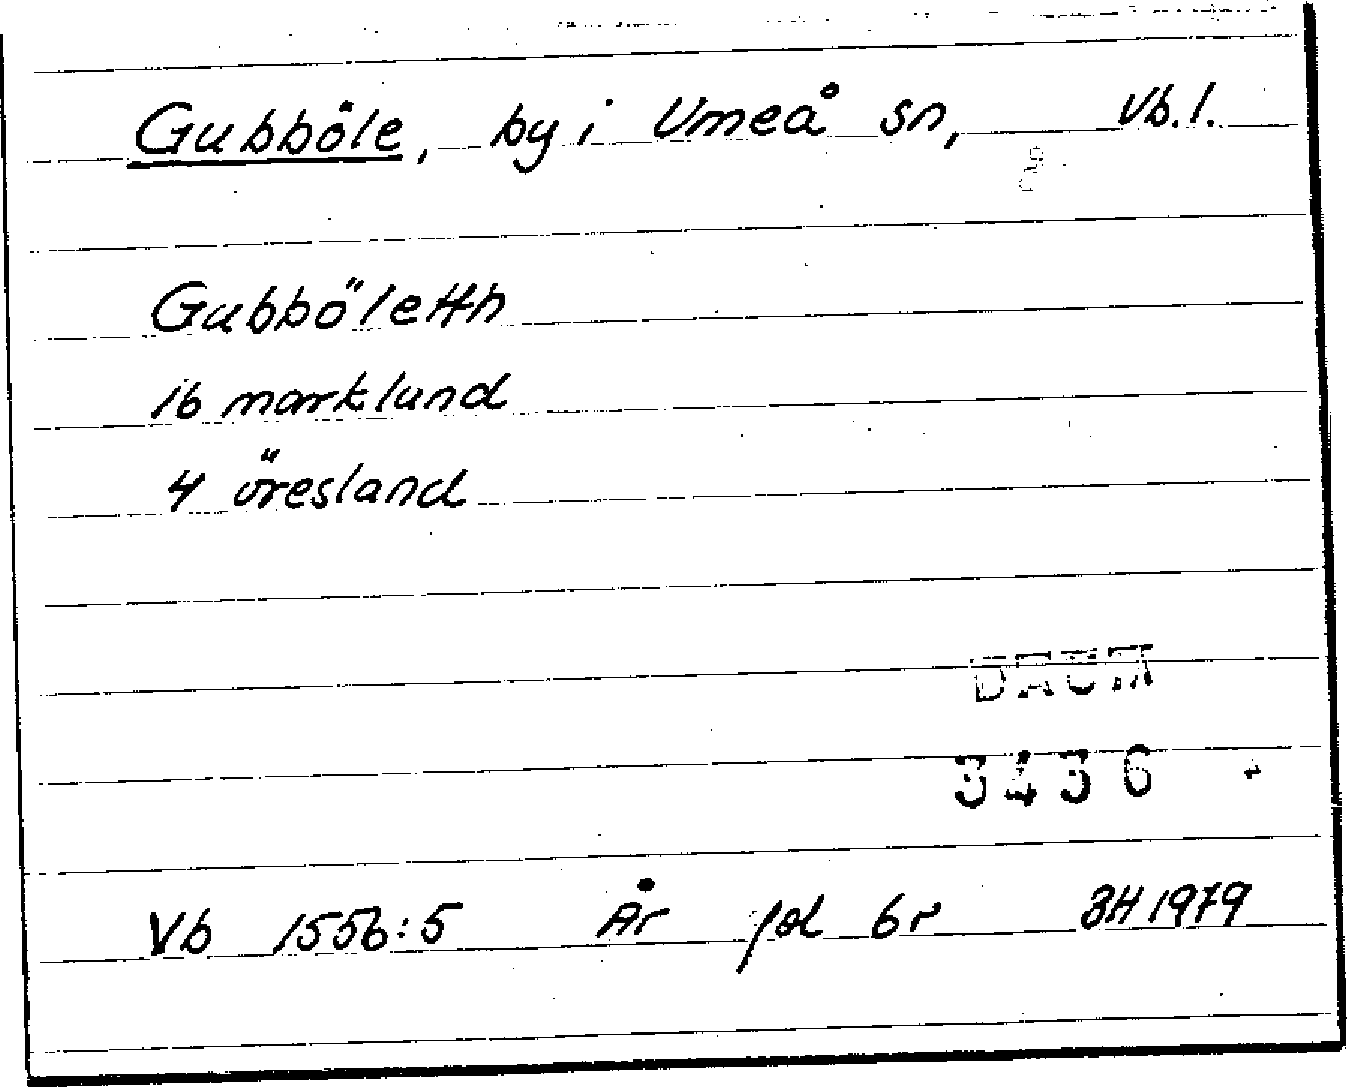 Gubböle, by i Umeå sn, Vb.l.
Gubböletth
16 markland
4 öresland
DAUM
3436
Vb 1556:5 År fol 6r BH 1979